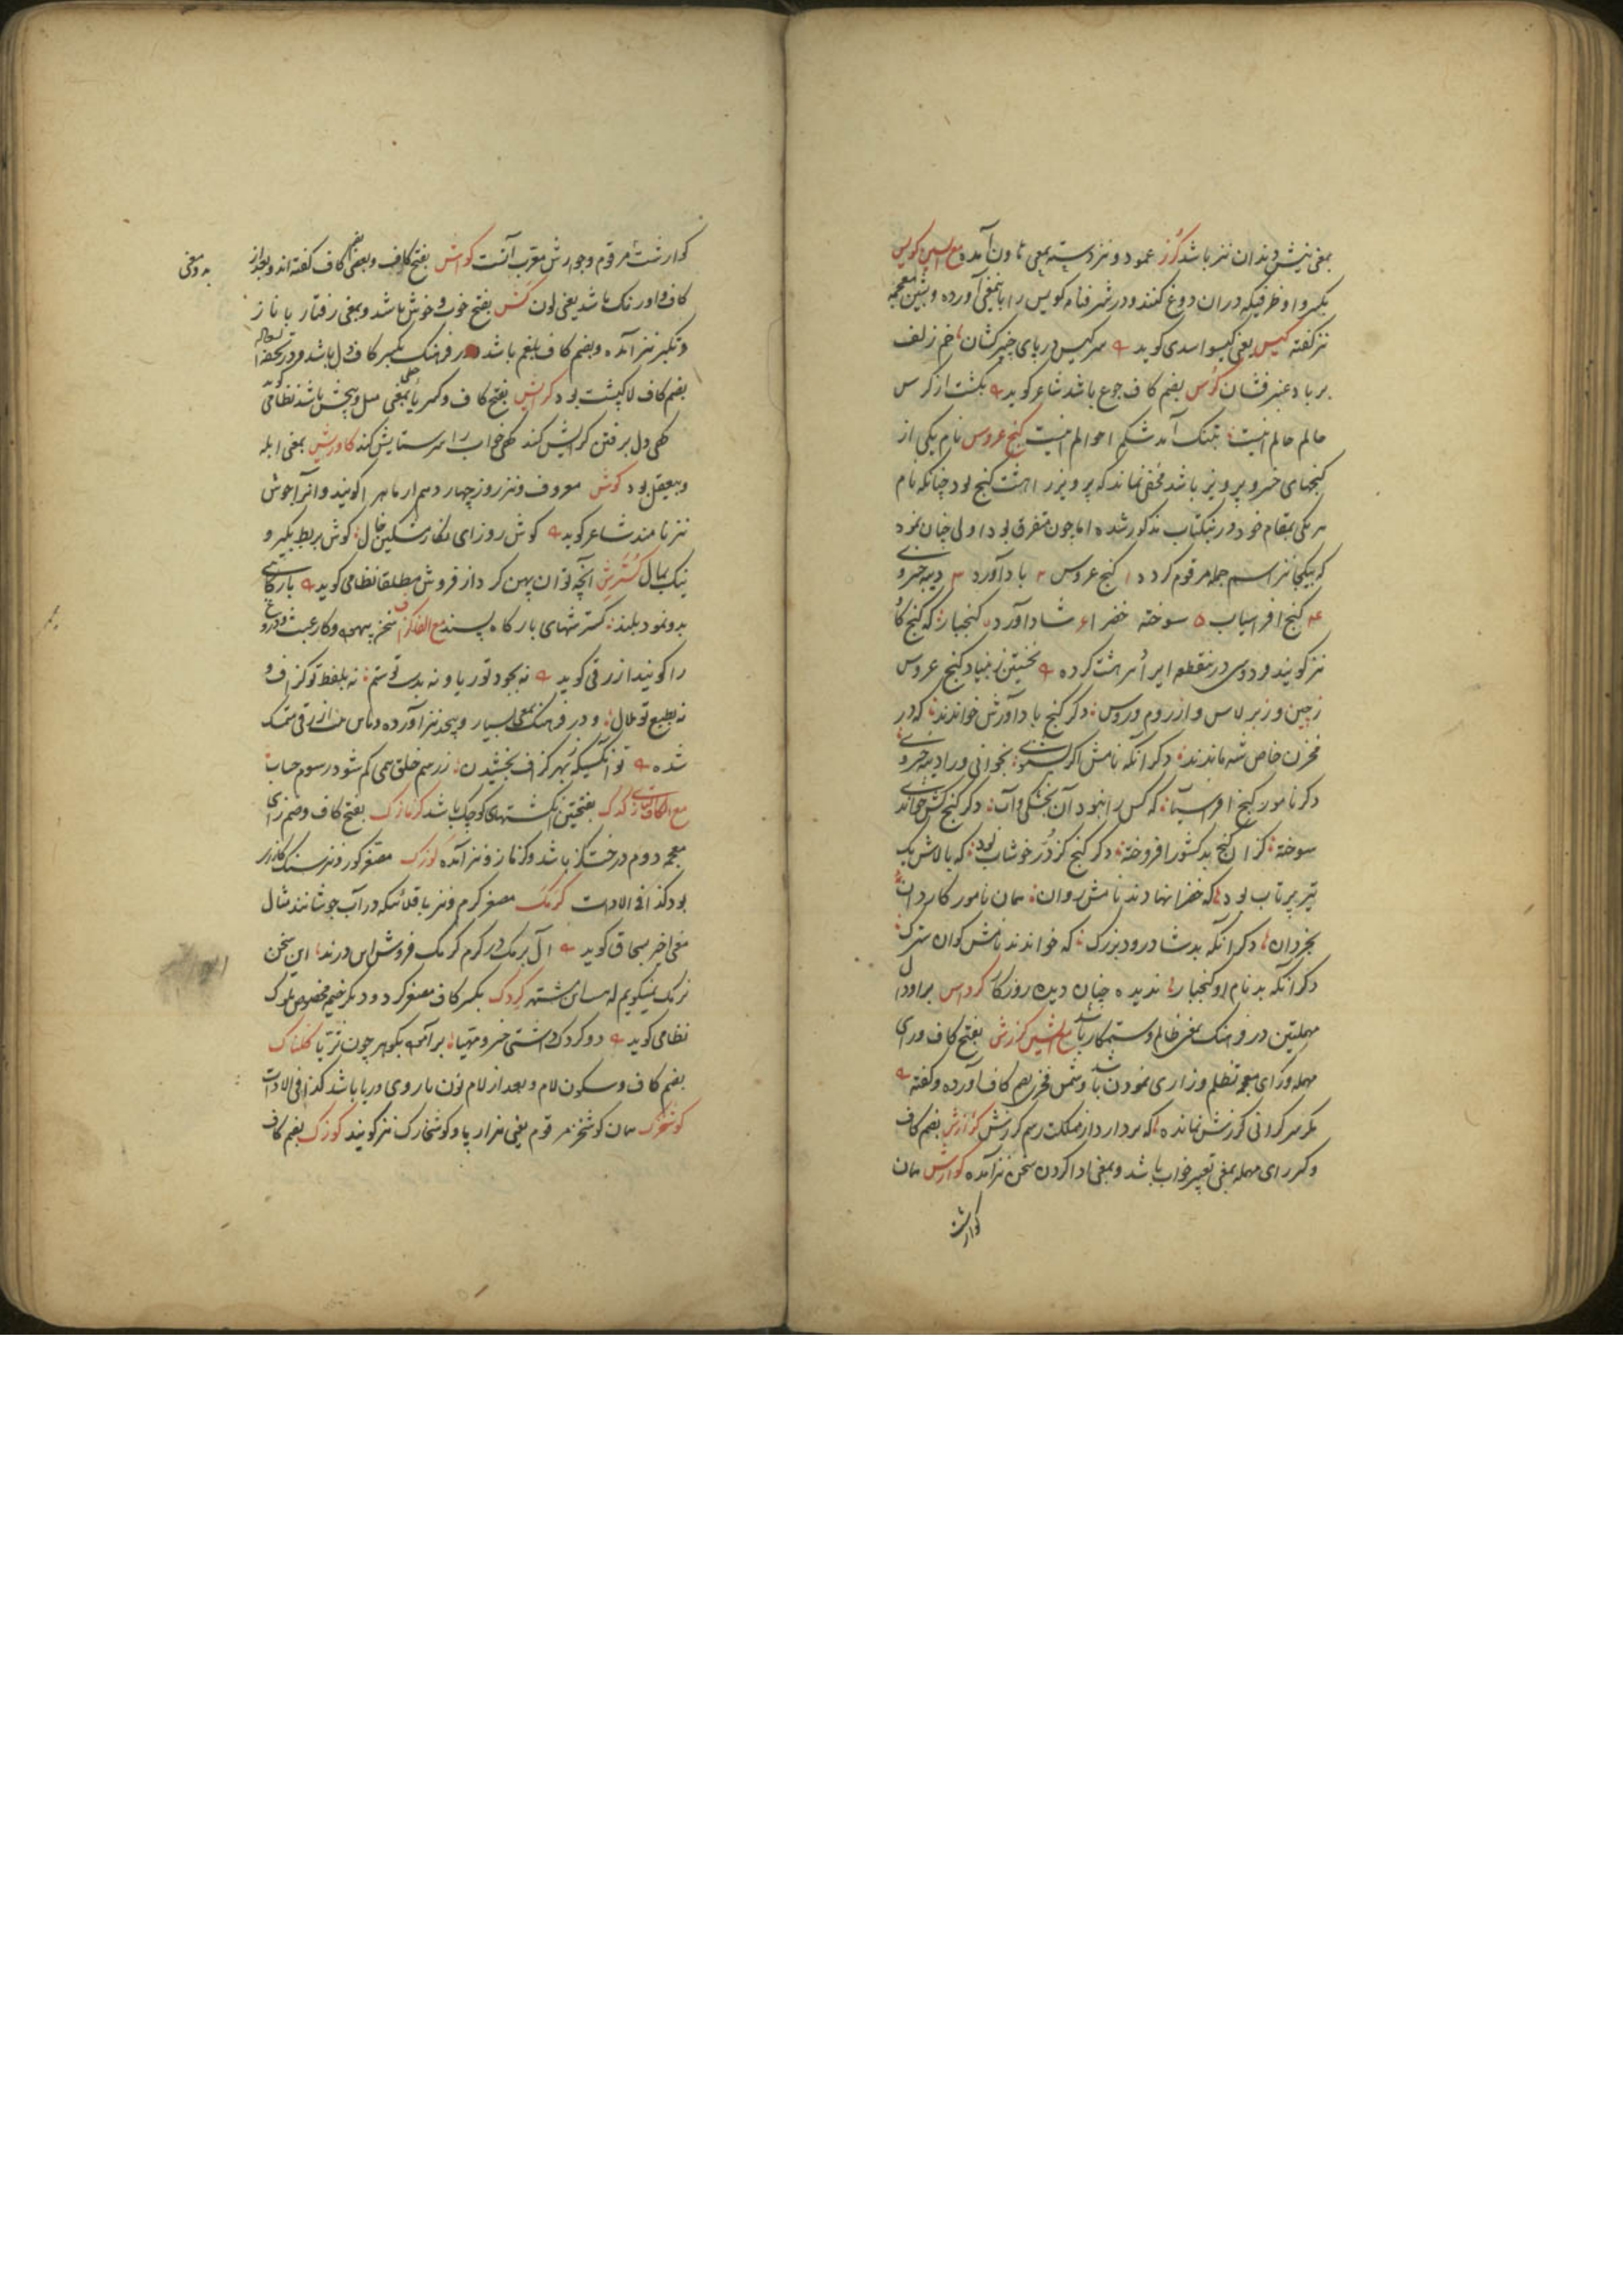 بمعنی نیش دندان نیز باشد گرز عمود و نیز دسته یعنی هاون آمده مع السین کویس
بکسر واو ظرفیکه دران دوغ کنند و در شرفنامه کویس را باینمعنی آورده و بشین معجمه
نیز گفته کیس یعنی گیسو اسدی گوید سر کیس در پای چنبر کشان خم زلف
بر باد عنبر فشان کرس بضم کاف جوع باشد شاعر گوید بگشت از کرس
حالم حالم اینست بتنگ آمد شکم احوالم اینست گنج عروس نام یکی از
گنجهای خسرو پرویز باشد مخفی نماند که پرویز را هشت گنج بود چنانکه نام
هر یکی بمقام خود درینکتاب مذکور شده اما چون متفرق بود اولی چنان نمود
که بیکجا نیز اسم جمله مرقوم گردد ۱ گنج عروس ۲ باد آورد ۳ دیبه خسروی
۴ گنج افراسیاب ۵ سوخته خضرا ۶ شاد آورد گنجبار که گنج گاو
نیز گویند فردوسی درینقطعه ایراد هر هشت کرده نخستین ز بنیاد گنج عروس
ز چین و ز برطاس و از روم و روس دگر گنج باد آورش خواندند که در
مخزن خاص شه ماندند دگر آنکه نامش اگر بشنوی بخوانی ورا دیبه خسروی
دگر نامور گنج افراسیاب که کس را نبود آن بخشکی و آب دگر گنج کش خواندی
سوخته کزان گنج بد کشور افروخته دگر گنج کز در خوشاب بود که بالاش یک
تیر پرتاب بود که خضرا نهادند نامش روان همان نامور کاردان
بخردان دگر آنکه بد شادورد بزرگ که خوانند نامش گوان سترگ
دگر آنکه بد نام او گنجبار ندیده چنان دیده روزگار کرداس براو دال
مهملتین در فرهنگ بمعنی ظالم و ستمکار باشد مع الشین کرزش بفتح کاف و رای
مهمله و زای معجمه تظلم و زاری نمودن باشد و شمس فخری بضم کاف آورده و گفته
مگر سر گرانی کرزش نمانده که بردارد از مملکت رسم کرزش گزارش بضم کاف
و کسر رای مهمله بمعنی تعبیر خواب باشد و بمعنی ادا کردن سخن نیز آمده گوارش همان
گوارشت
گوارشت مرقوم و جوارش معرب آنست کواش بفتح کاف و بعضی بضم کاف گفته اند و بعد از
بدو معنی
کاف واو رنگ باشد یعنی لون کش بفتح خوب و خوش باشد و بمعنی رفتار با ناز
و تکبر نیز آمده و بضم کاف بلغم باشد و در فرهنگ بکسر کاف دل باشد و در تحفه
بضم کاف لاکپشت بود گرایش بفتح کاف و کسر یا بمعنی میل و پیچش باشد نظامی گوید
گهی دل برفتن گرایش کند گهی خواب را سر ستایش کند کاورش بمعنی ابله
و بیعقل بود گوش معروف و نیز روز چهاردهم از ماه را گویند و آنرا جوش
نیز نامند شاعر گوید گوش روز ای نگار مشکین خال گوش بربط بگیر و
نیک بمال گسترش آنچه توان پهن کرد از فروش مطلقا نظامی گوید بارگاهی
بدو نمود بلند گسترشهای بارگاه پسند مع الفا گزاف سخن بیهوده و کار عبث و دروغ
را گویند ازرقی گوید نه بجود تو ریا و نه بدست تو ستم نه بلفظ تو گزاف و
نه بطبع تو ملال و در فرهنگ بمعنی بسیار و بیحد نیز آورده و باین بیت ازرقی متمسک
شده تو آنکسیکه بهر گزاف بخشیدن ز رسم خلق همی کم شود رسوم حساب
مع الکاف تازی کدک بفتحتین انگشتهای کوچک باشد گزمازک بفتح کاف و ضم زای
معجمه دوم درخت گز باشد و گزمازو نیز آمده کوزک مصغر کوز و نیز سنگ گازر
بود کذا فی الادات کرمک مصغر کرم و نیز باقلائیکه در آب جوشانند مثال
معنی اخیر بسحاق گوید آل برمک در کرم کرمک فروش اس درند این سخن
نرمک نمیگویم که بس این مشتهر کردک بکسر کاف مصغر کرد و دیگر خیمه مخصوص ملوک
نظامی گوید دو کردک داشتی خسرو مهیا بر آموده بگوهر چون ثریا کلناک
بضم کاف و سکون لام و بعد از لام نون مار و می دریا باشد کذا فی الادات
کوشخزک همان کوشخز مرقوم یعنی هزارپا و کوشخارک نیز گویند کوزک بضم کاف